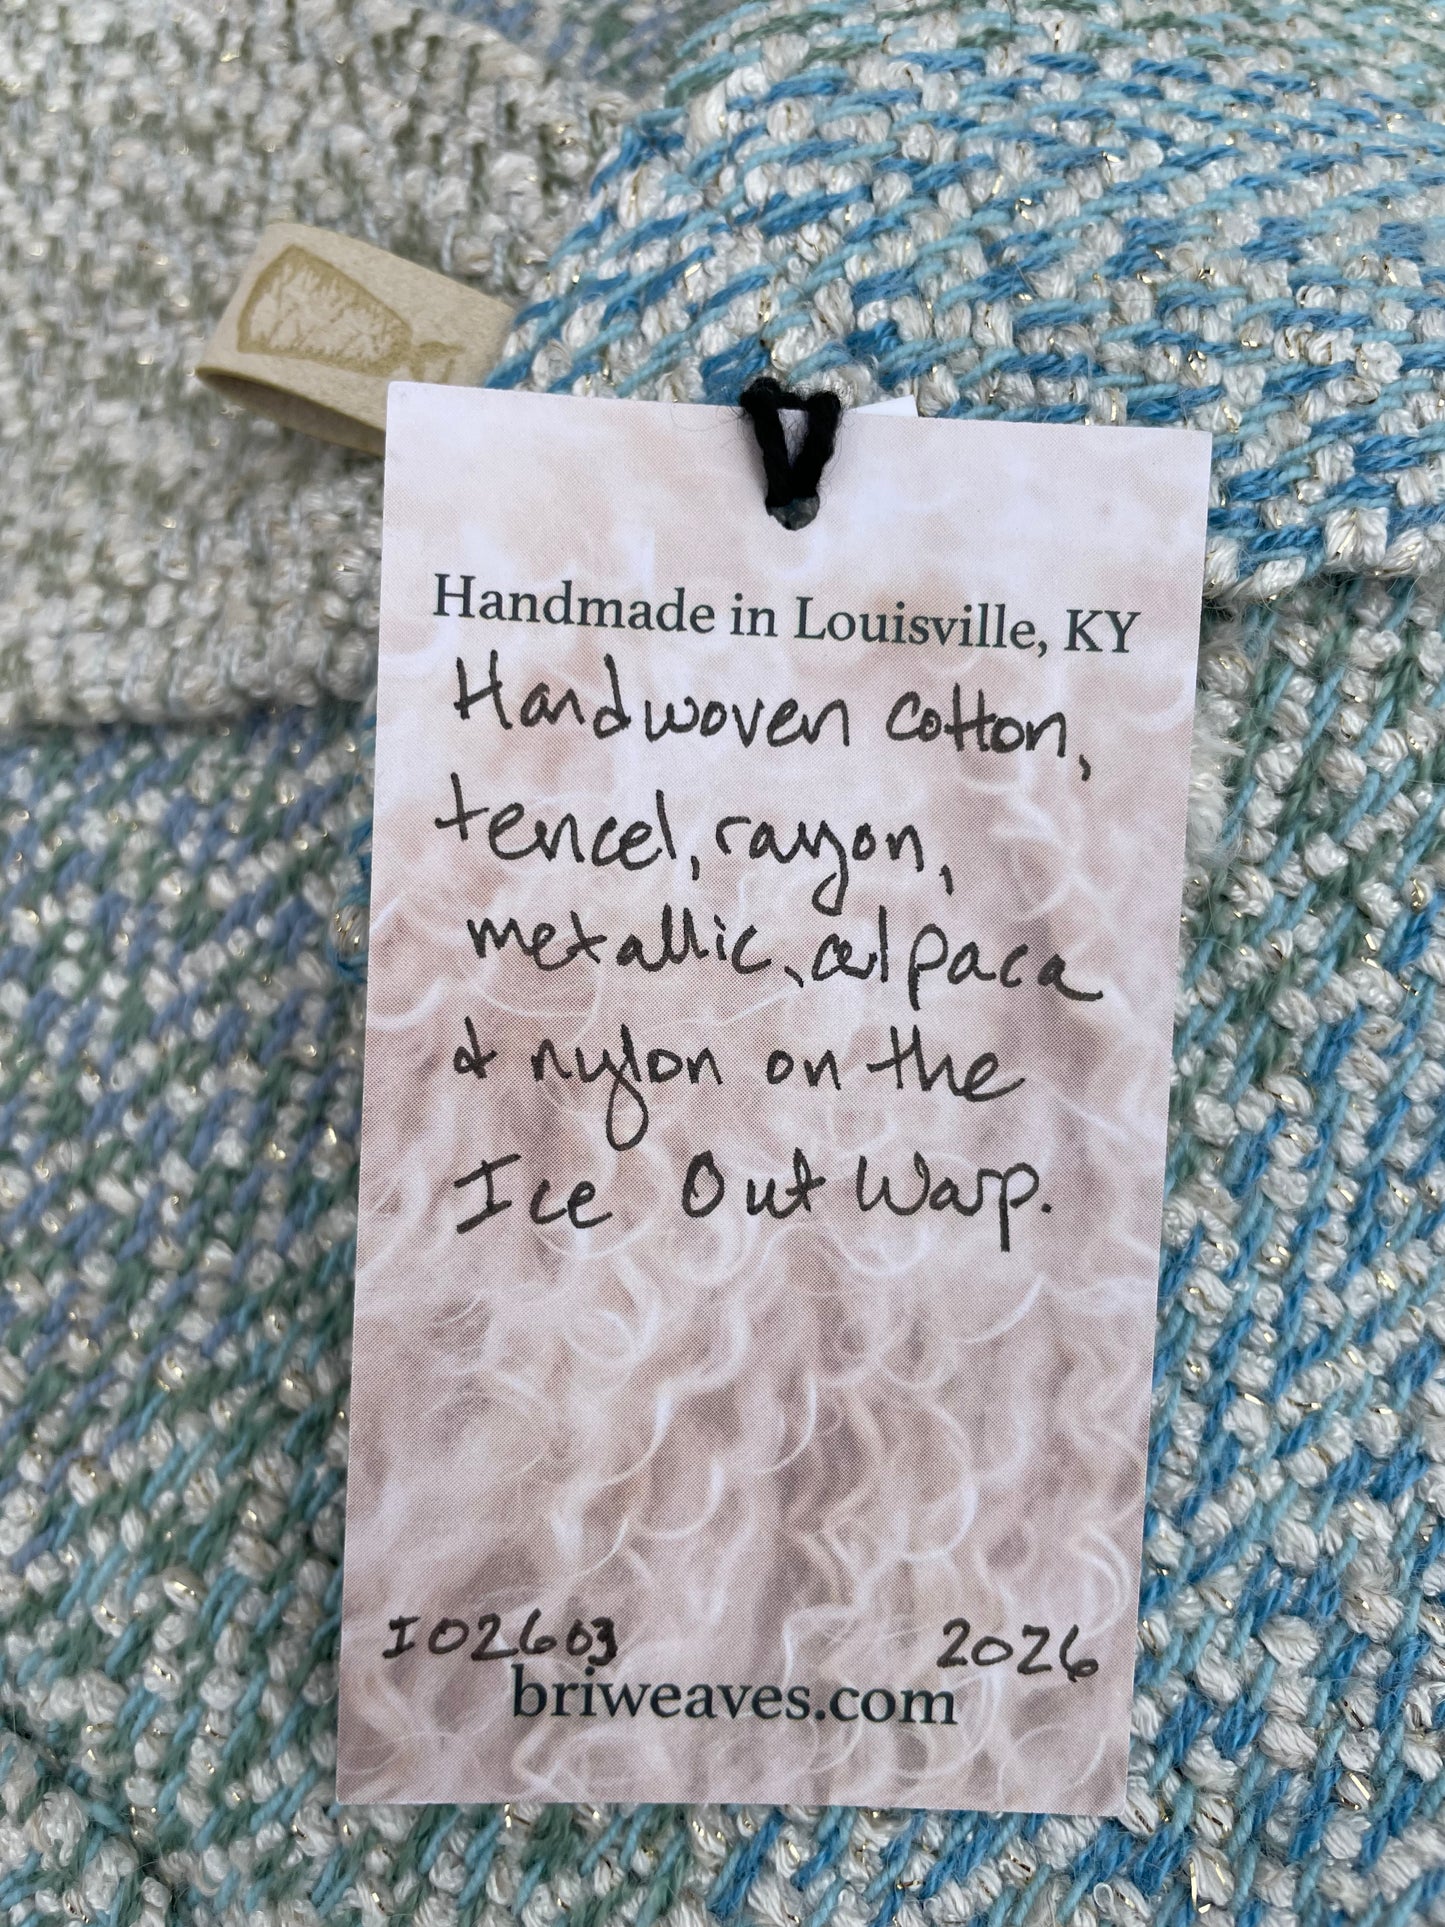 Handmade in Louisville, KY
Handwoven cotton,
tencel, rayon,
metallic, alpaca
& nylon on the
Ice Out Warp.
IO2603 2026
briweaves.com